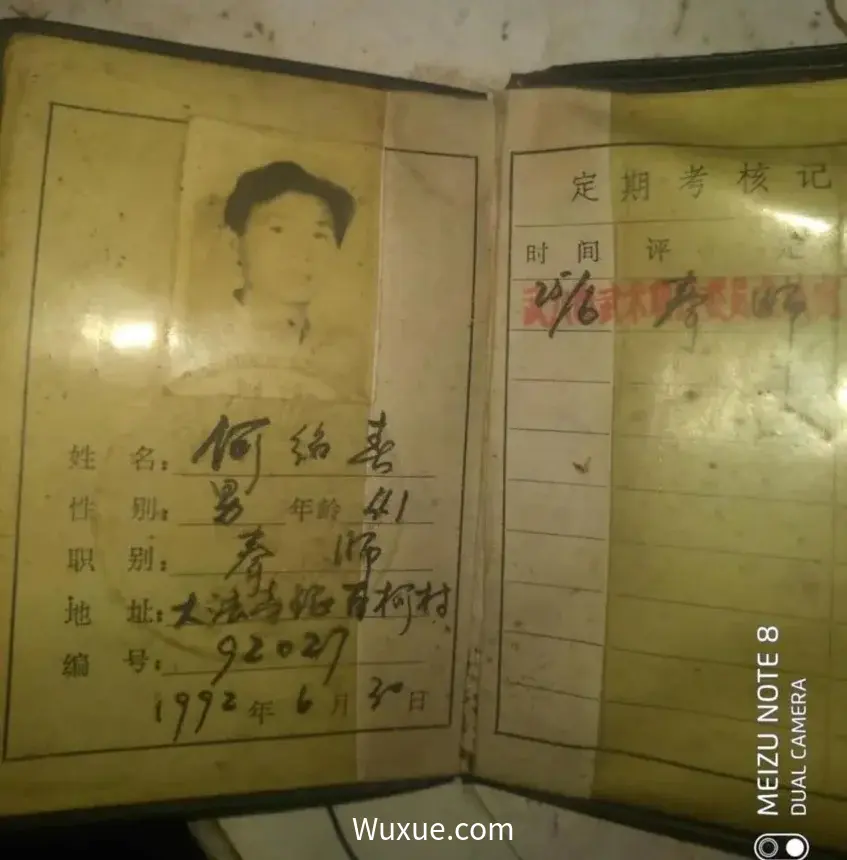 姓名：何绍春
性别：男 年龄 41
职别：拳师
地址：大法寺镇百柯村
编号：92027
1992年6月30日
定期考核记
时间 评 定
25/6 拳师
MEIZU NOTE 8
DUAL CAMERA
Wuxue.com